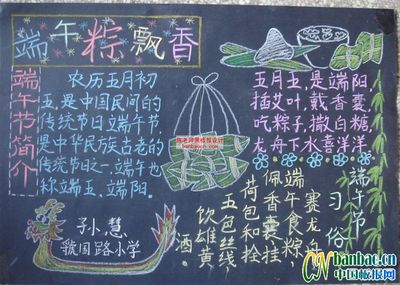 端午粽飘香
端午节简介
农历五月初
五,是中国民间的
传统节日端午节,
是中华民族古老的
传统节日之一。端午也
称端五,端阳。
五月五,是端阳,
插艾叶,戴香囊
吃粽子,撒白糖,
龙舟下水喜洋洋
端午节
习俗
赛龙舟
端午食粽,
佩香囊,挂
荷包和拴
五色丝线,
饮雄黄
酒。
孙慧
虢国路小学
CNbanbao.cn
中国板报网